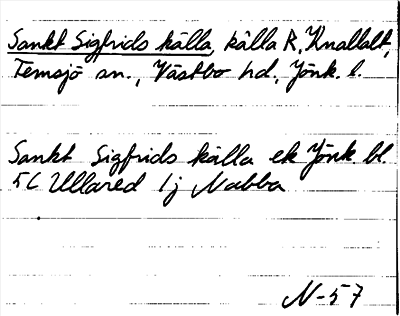 Sankt Sigfrids källa, källa R, Knallalt,
Femsjö sn., Västbo hd., Jönk. l.
Sankt Sigfrids källa ek Jönk. bl.
5C Ullared 1j Nabba
N-57